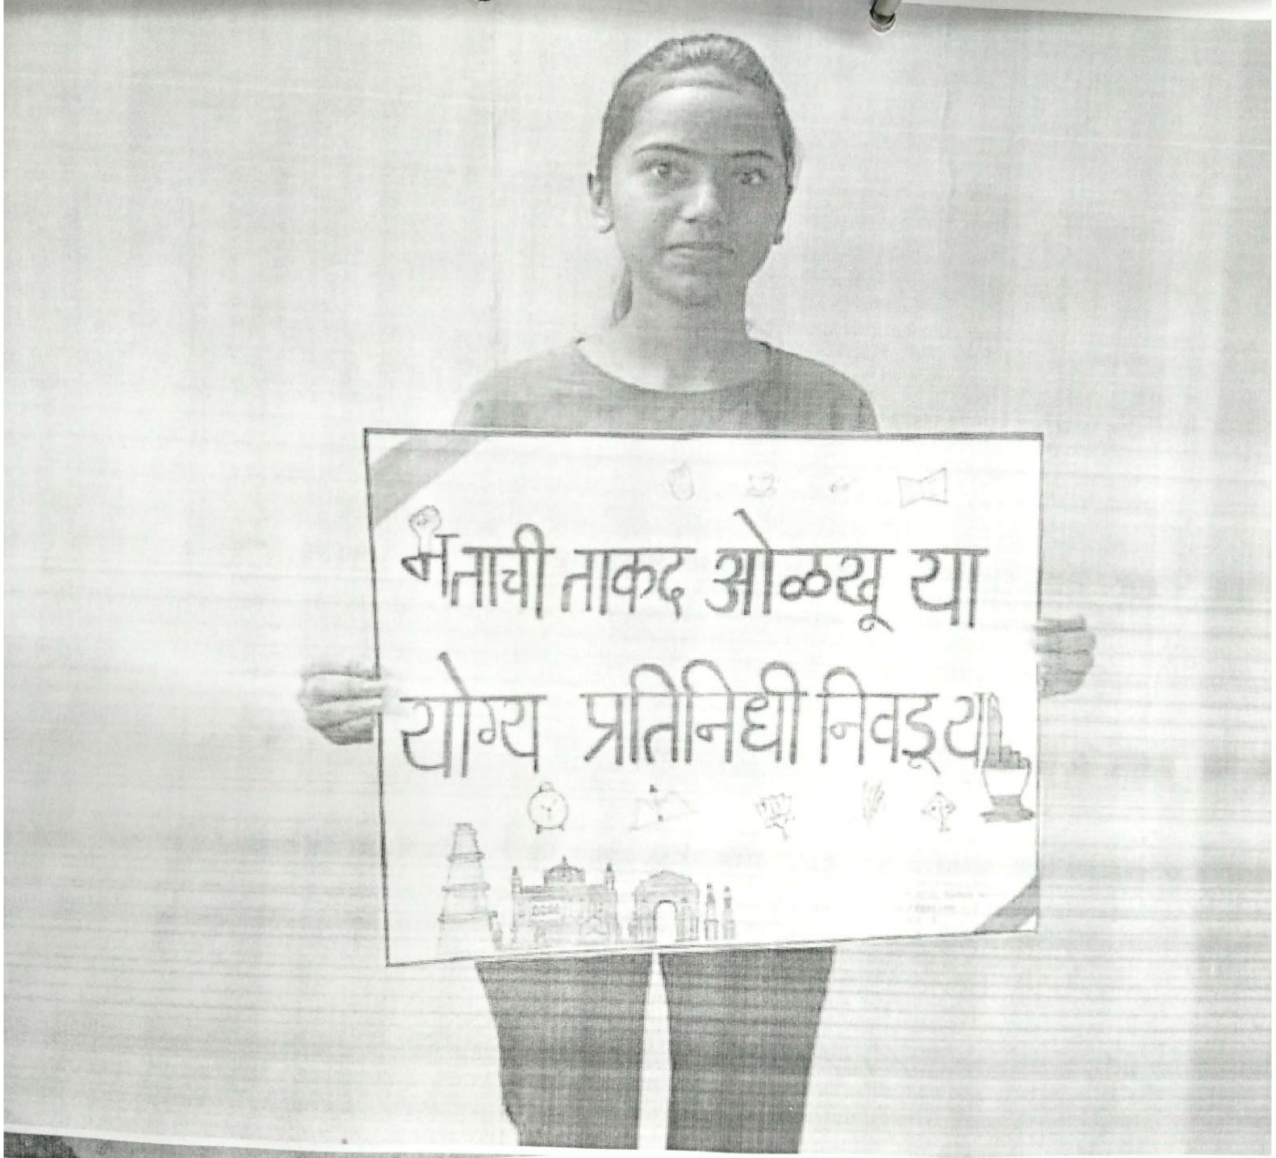 मताची ताकद ओळखू या
योग्य प्रतिनिधी निवडू या